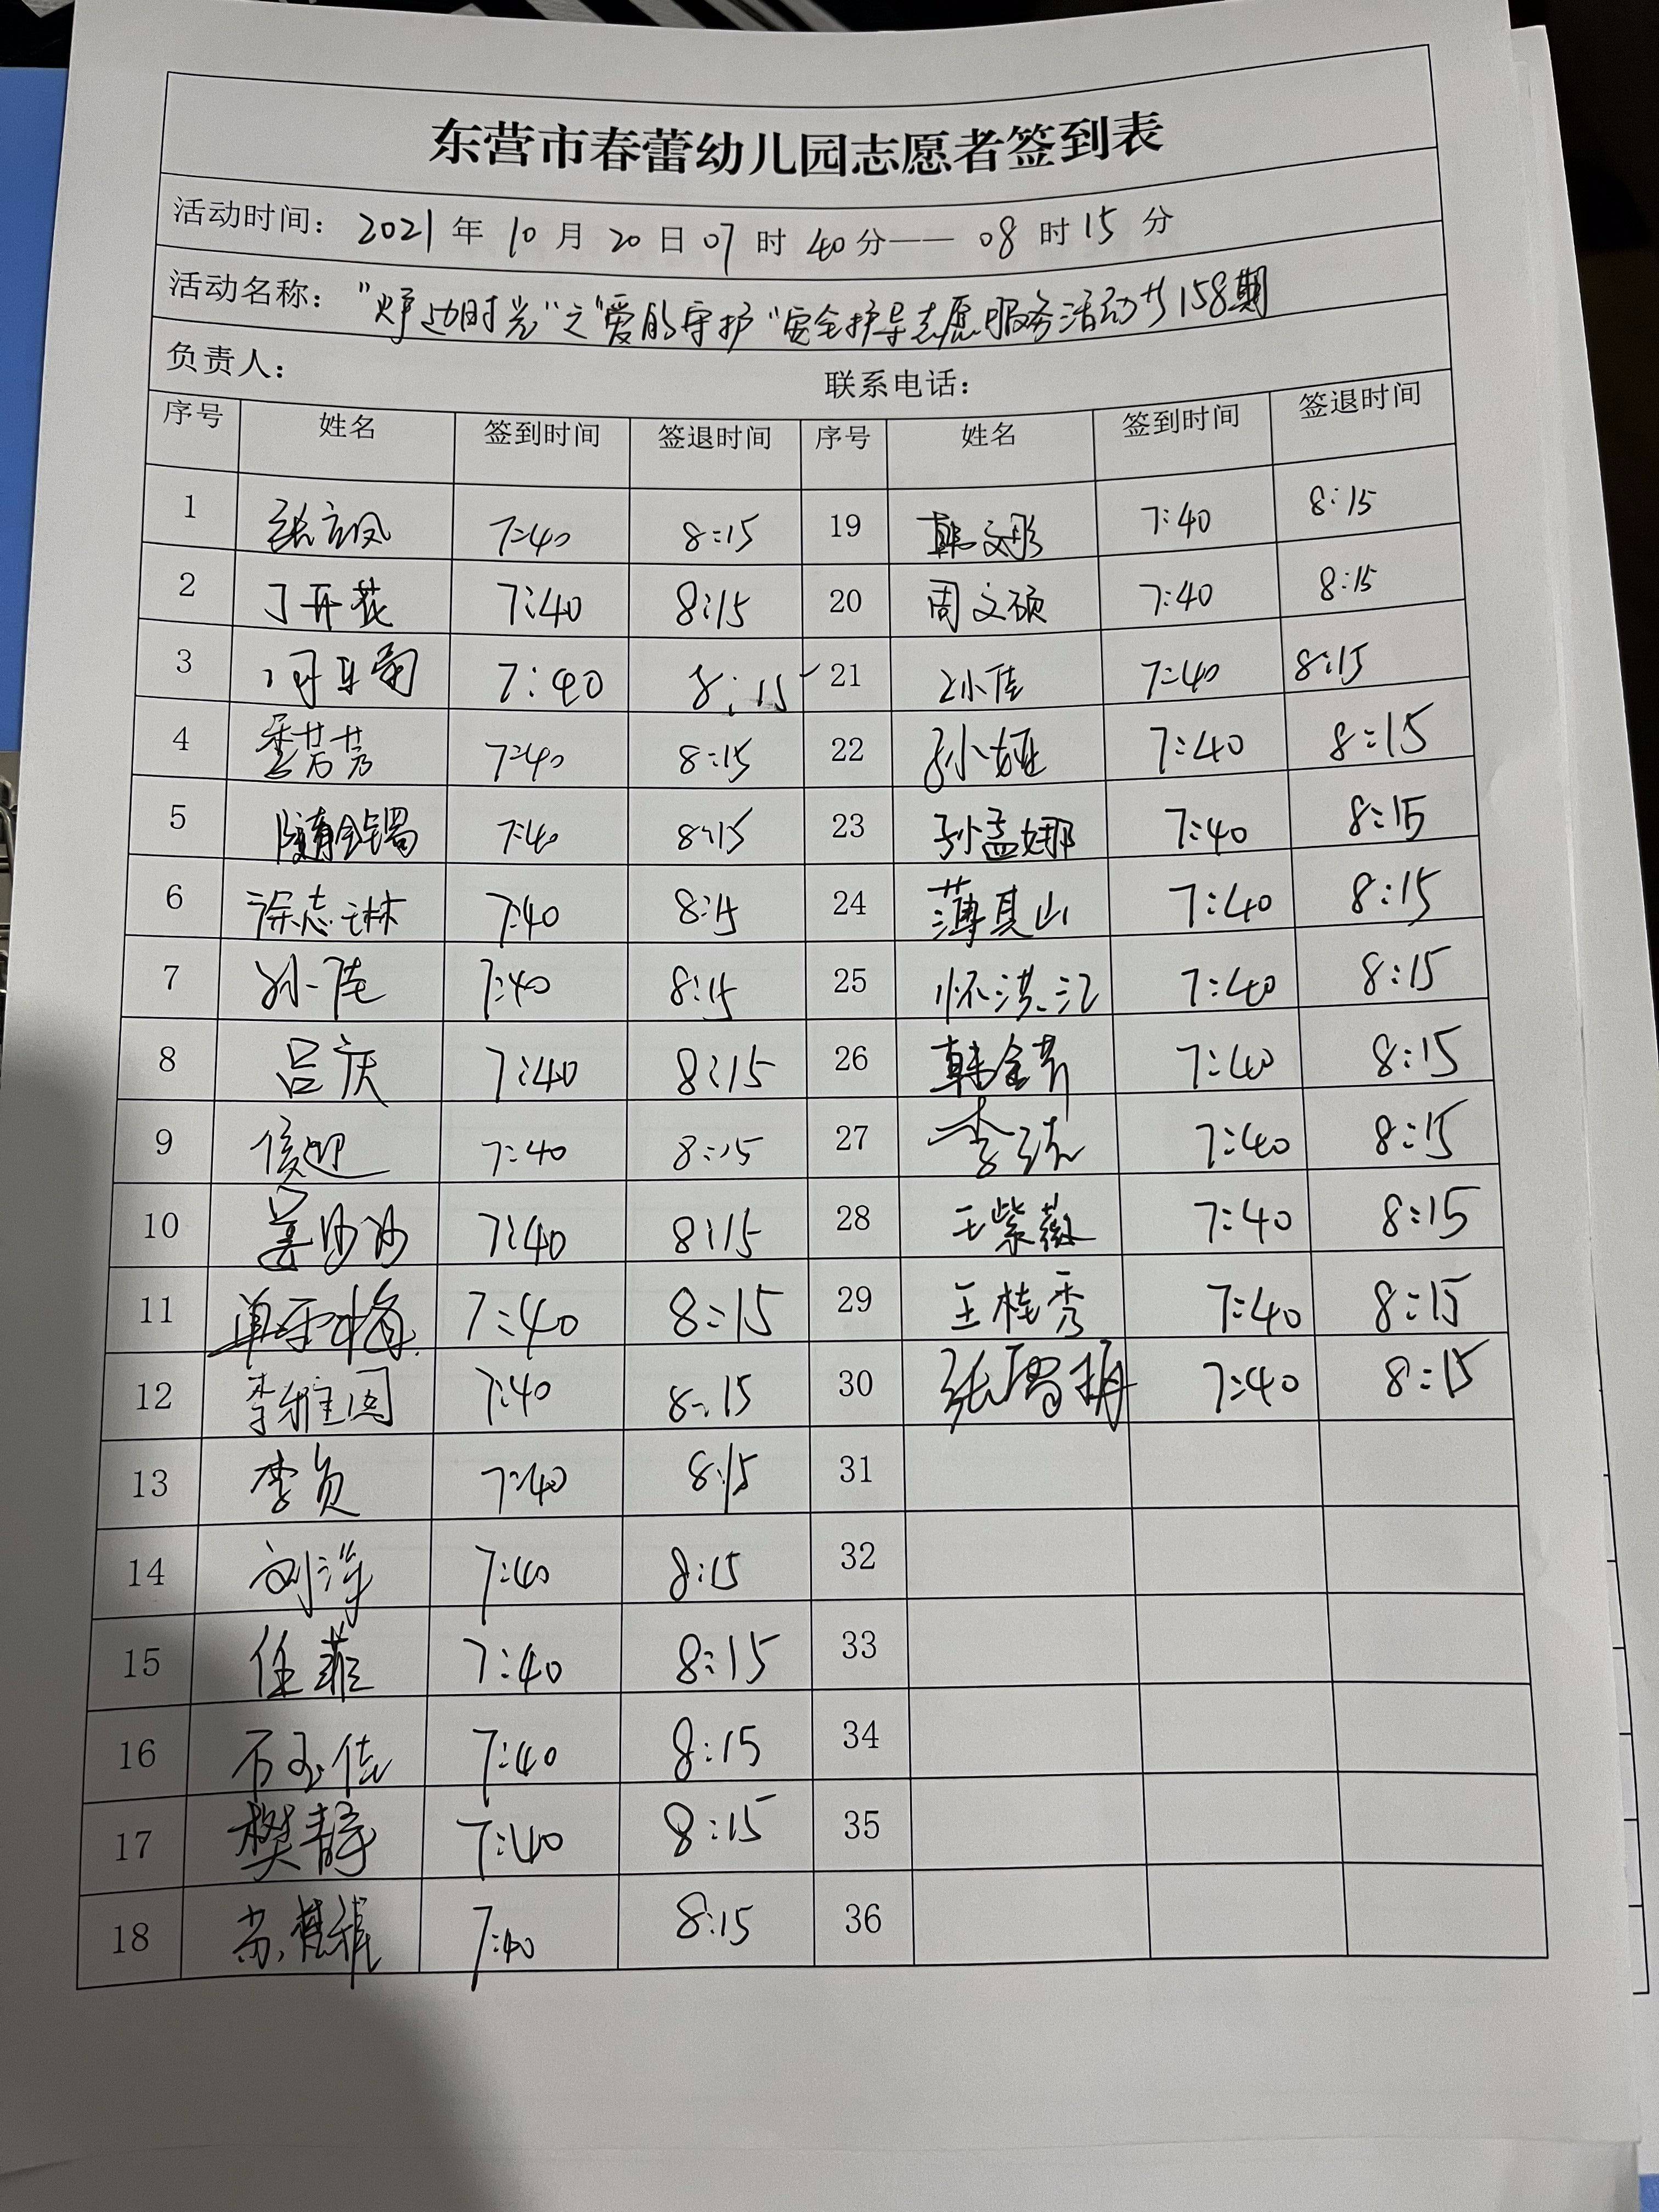 东营市春蕾幼儿园志愿者签到表
活动时间: 2021 年 10 月 20 日 07 时 40 分—— 08 时 15 分
活动名称: "炉边时光"之"爱的守护"安全护导志愿服务活动共158期
负责人: 联系电话:
序号 姓名 签到时间 签退时间 序号 姓名 签到时间 签退时间
1 张立凤 7:40 8:15 19 韩文彤 7:40 8:15
2 丁开花 7:40 8:15 20 周文硕 7:40 8:15
3 7:40 8:15 21 孙佳 7:40 8:15
4 季芳芳 7:40 8:15 22 孙娅 7:40 8:15
5 随金锡 7:40 8:15 23 孙孟娜 7:40 8:15
6 徐志琳 7:40 8:15 24 薄其山 7:40 8:15
7 孙佳 7:40 8:15 25 怀洪江 7:40 8:15
8 吕庆 7:40 8:15 26 韩金芳 7:40 8:15
9 侯迎 7:40 8:15 27 李 7:40 8:15
10 姜沙沙 7:40 8:15 28 王紫薇 7:40 8:15
11 单雪梅 7:40 8:15 29 王桂秀 7:40 8:15
12 李雅 7:40 8:15 30 张 7:40 8:15
13 李贞 7:40 8:15 31
14 刘洋 7:40 8:15 32
15 任菲 7:40 8:15 33
16 石玉佳 7:40 8:15 34
17 樊静 7:40 8:15 35
18 7:40 8:15 36